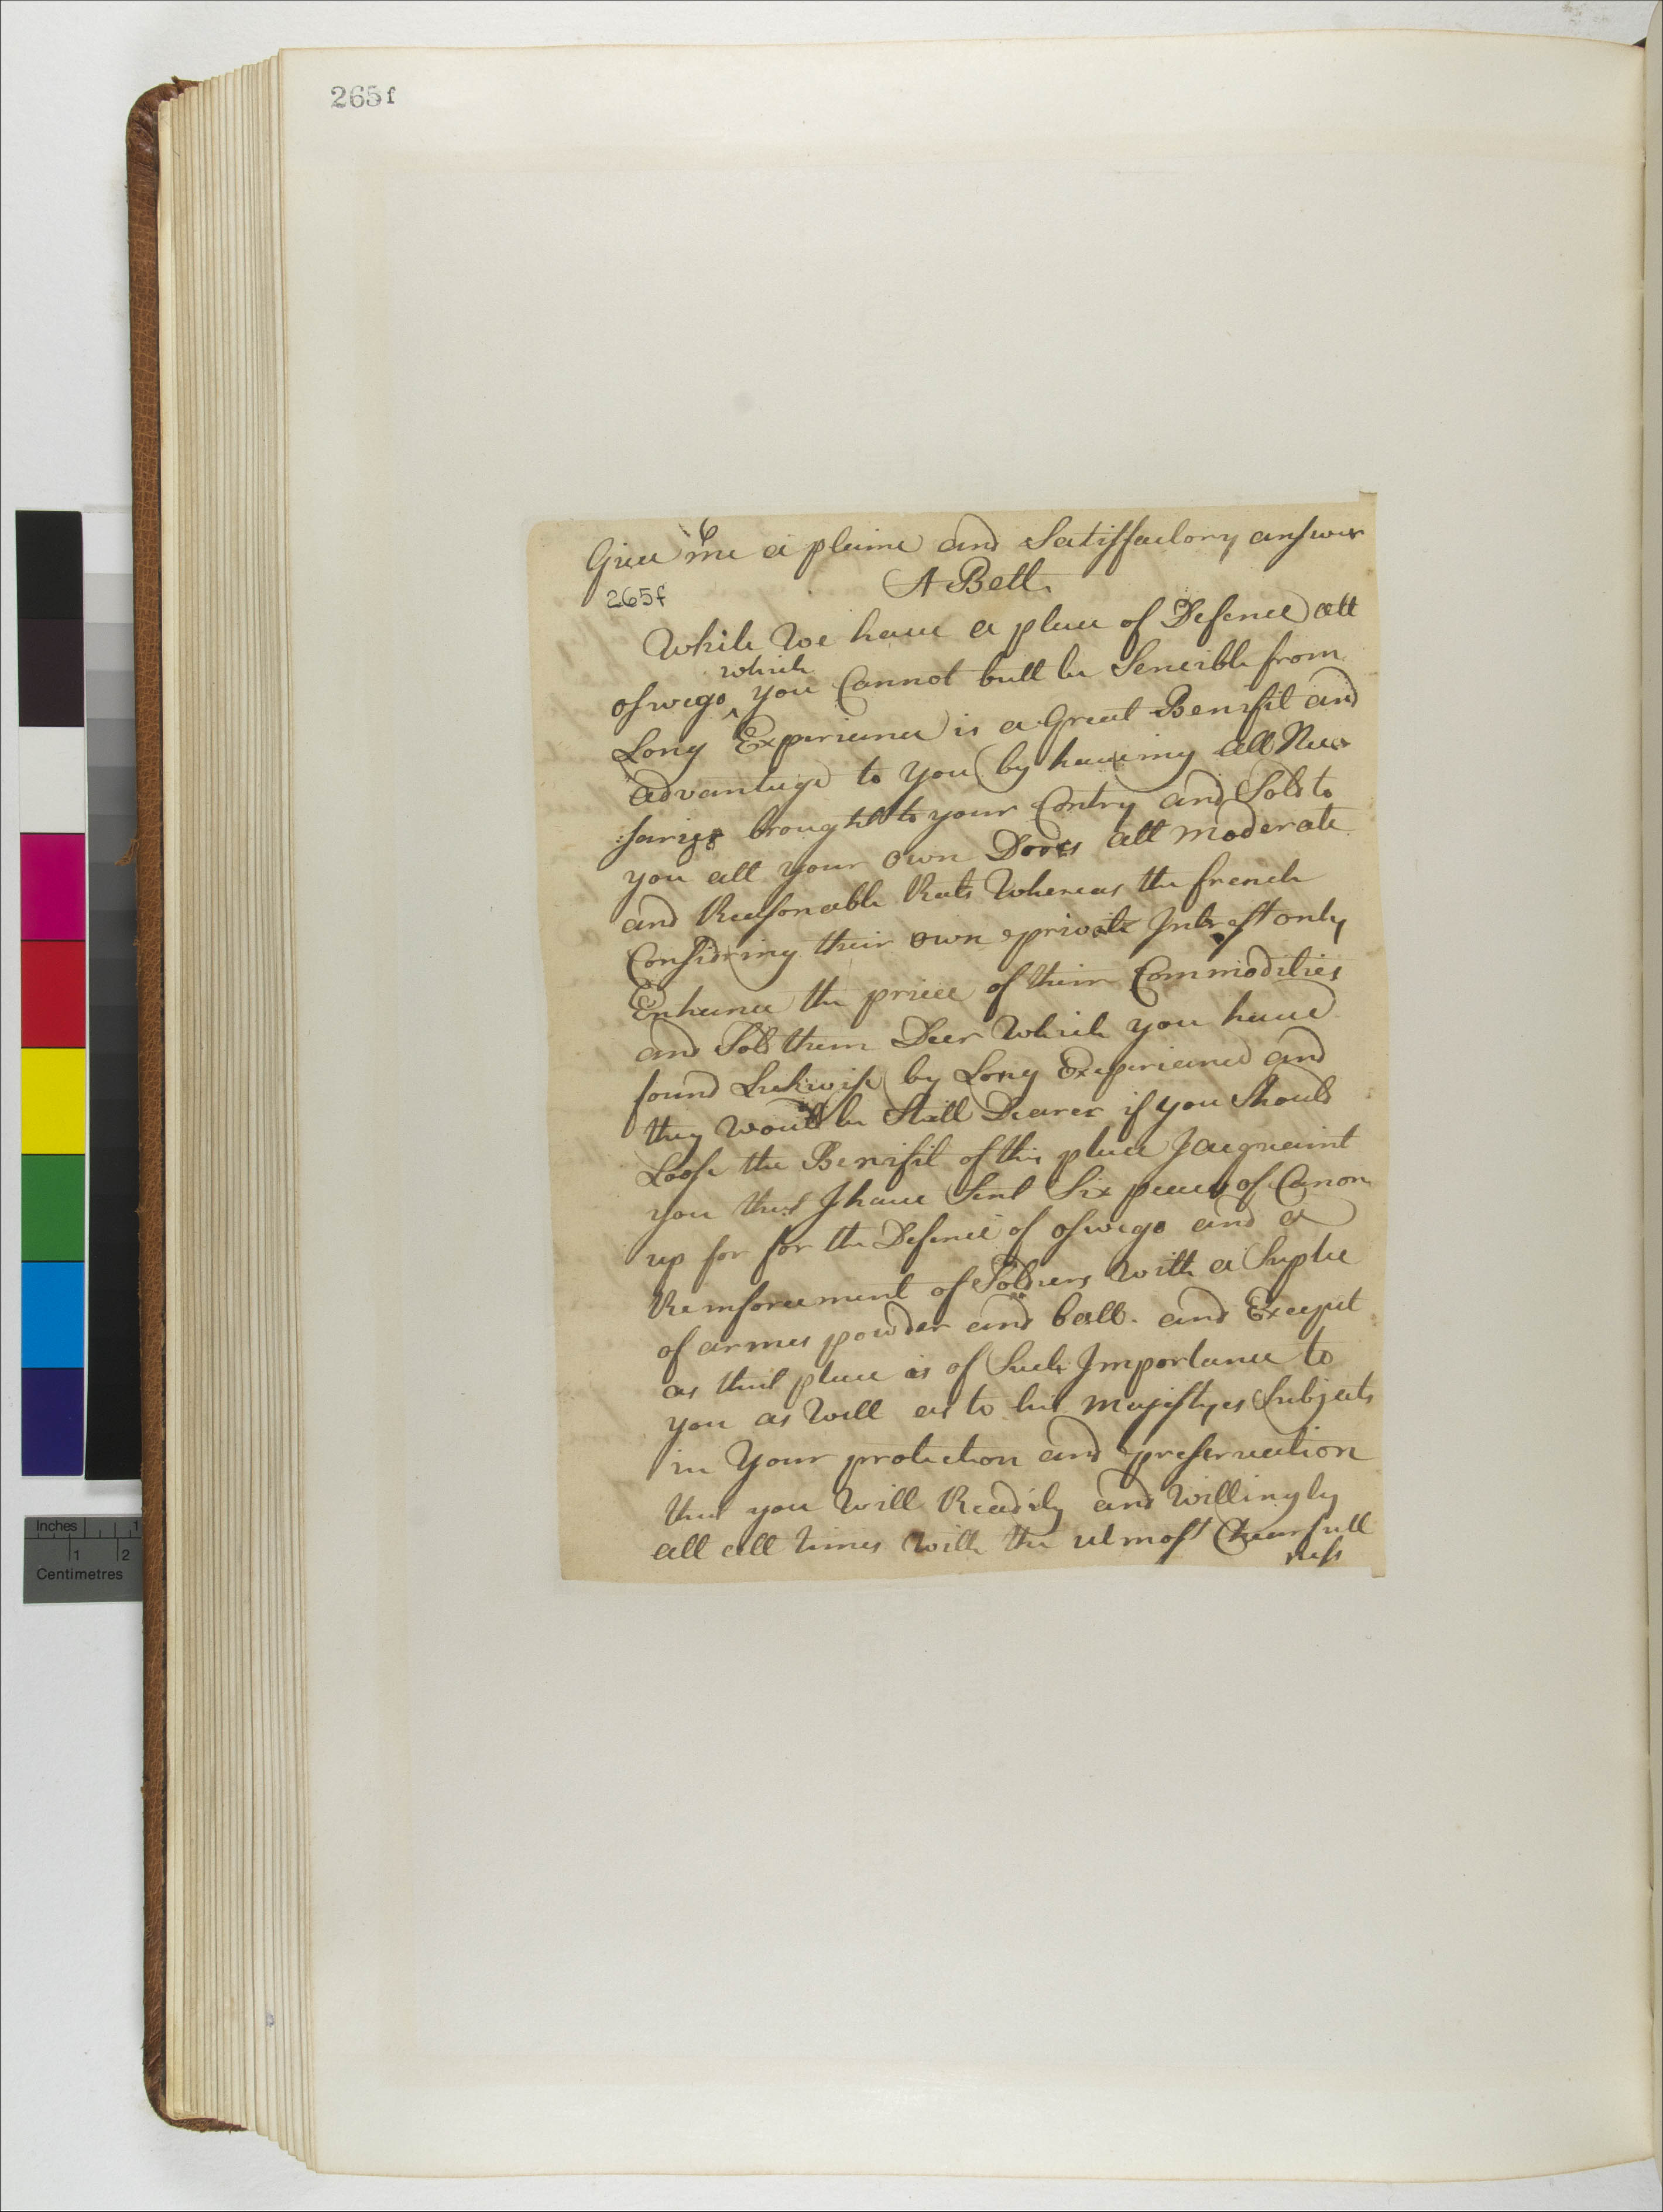 265f
6
Giue me a plaine and Satisfactory answer
265f
A Belt
While We haue a place of Defence att
oswego which you Cannot butt be Sencible from
Long Experience is a Great Benifit and
advantage to you by haueing all Nece
:saries brought to your Contry and Sold to
you att your own Doors att moderate
and Reasonable Rats Whereas the french
Considring their own private Intrest only
Enhance the price of their Commodities
and Sold them Deer Which you haue
found Likwise by Long Experience and
they Would be Still Dearer if you Should
Loose the Benifit of this place I acquaint
you that I haue Sent Six peeces of Canon
up for for the Defence of oswego and a
Reinforcement of Soldiers With a Suplie
of armes powder and ball. and Except
as that place is of Such Importance to
you as Well as to his majestyes Subjects
in Your protection and preservation
that you Will Readily and Willingly
att all times With the utmost Chearfull
ness
Inches 1
1 2
Centimetres